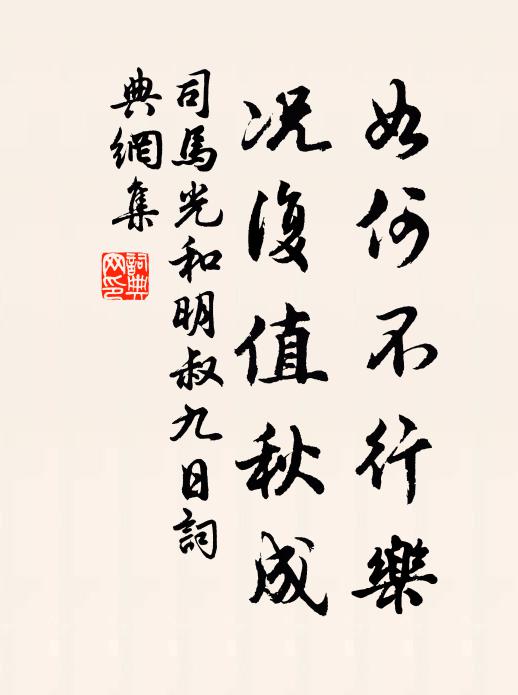 如何不行樂
況復值秋成
司馬光和明叔九日詞
典網集
詞典
网印